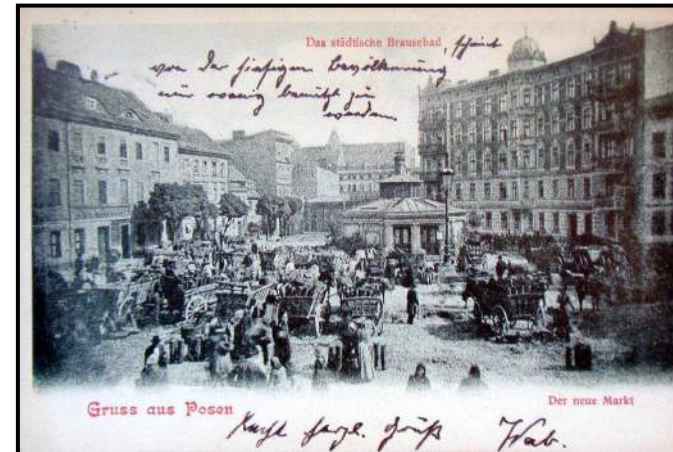 Das städtische Brausebad, scheint
von der hiesigen Bevölkerung
nur wenig benützt zu
werden
Gruss aus Posen
Der neue Markt
Recht herzl. Gruß